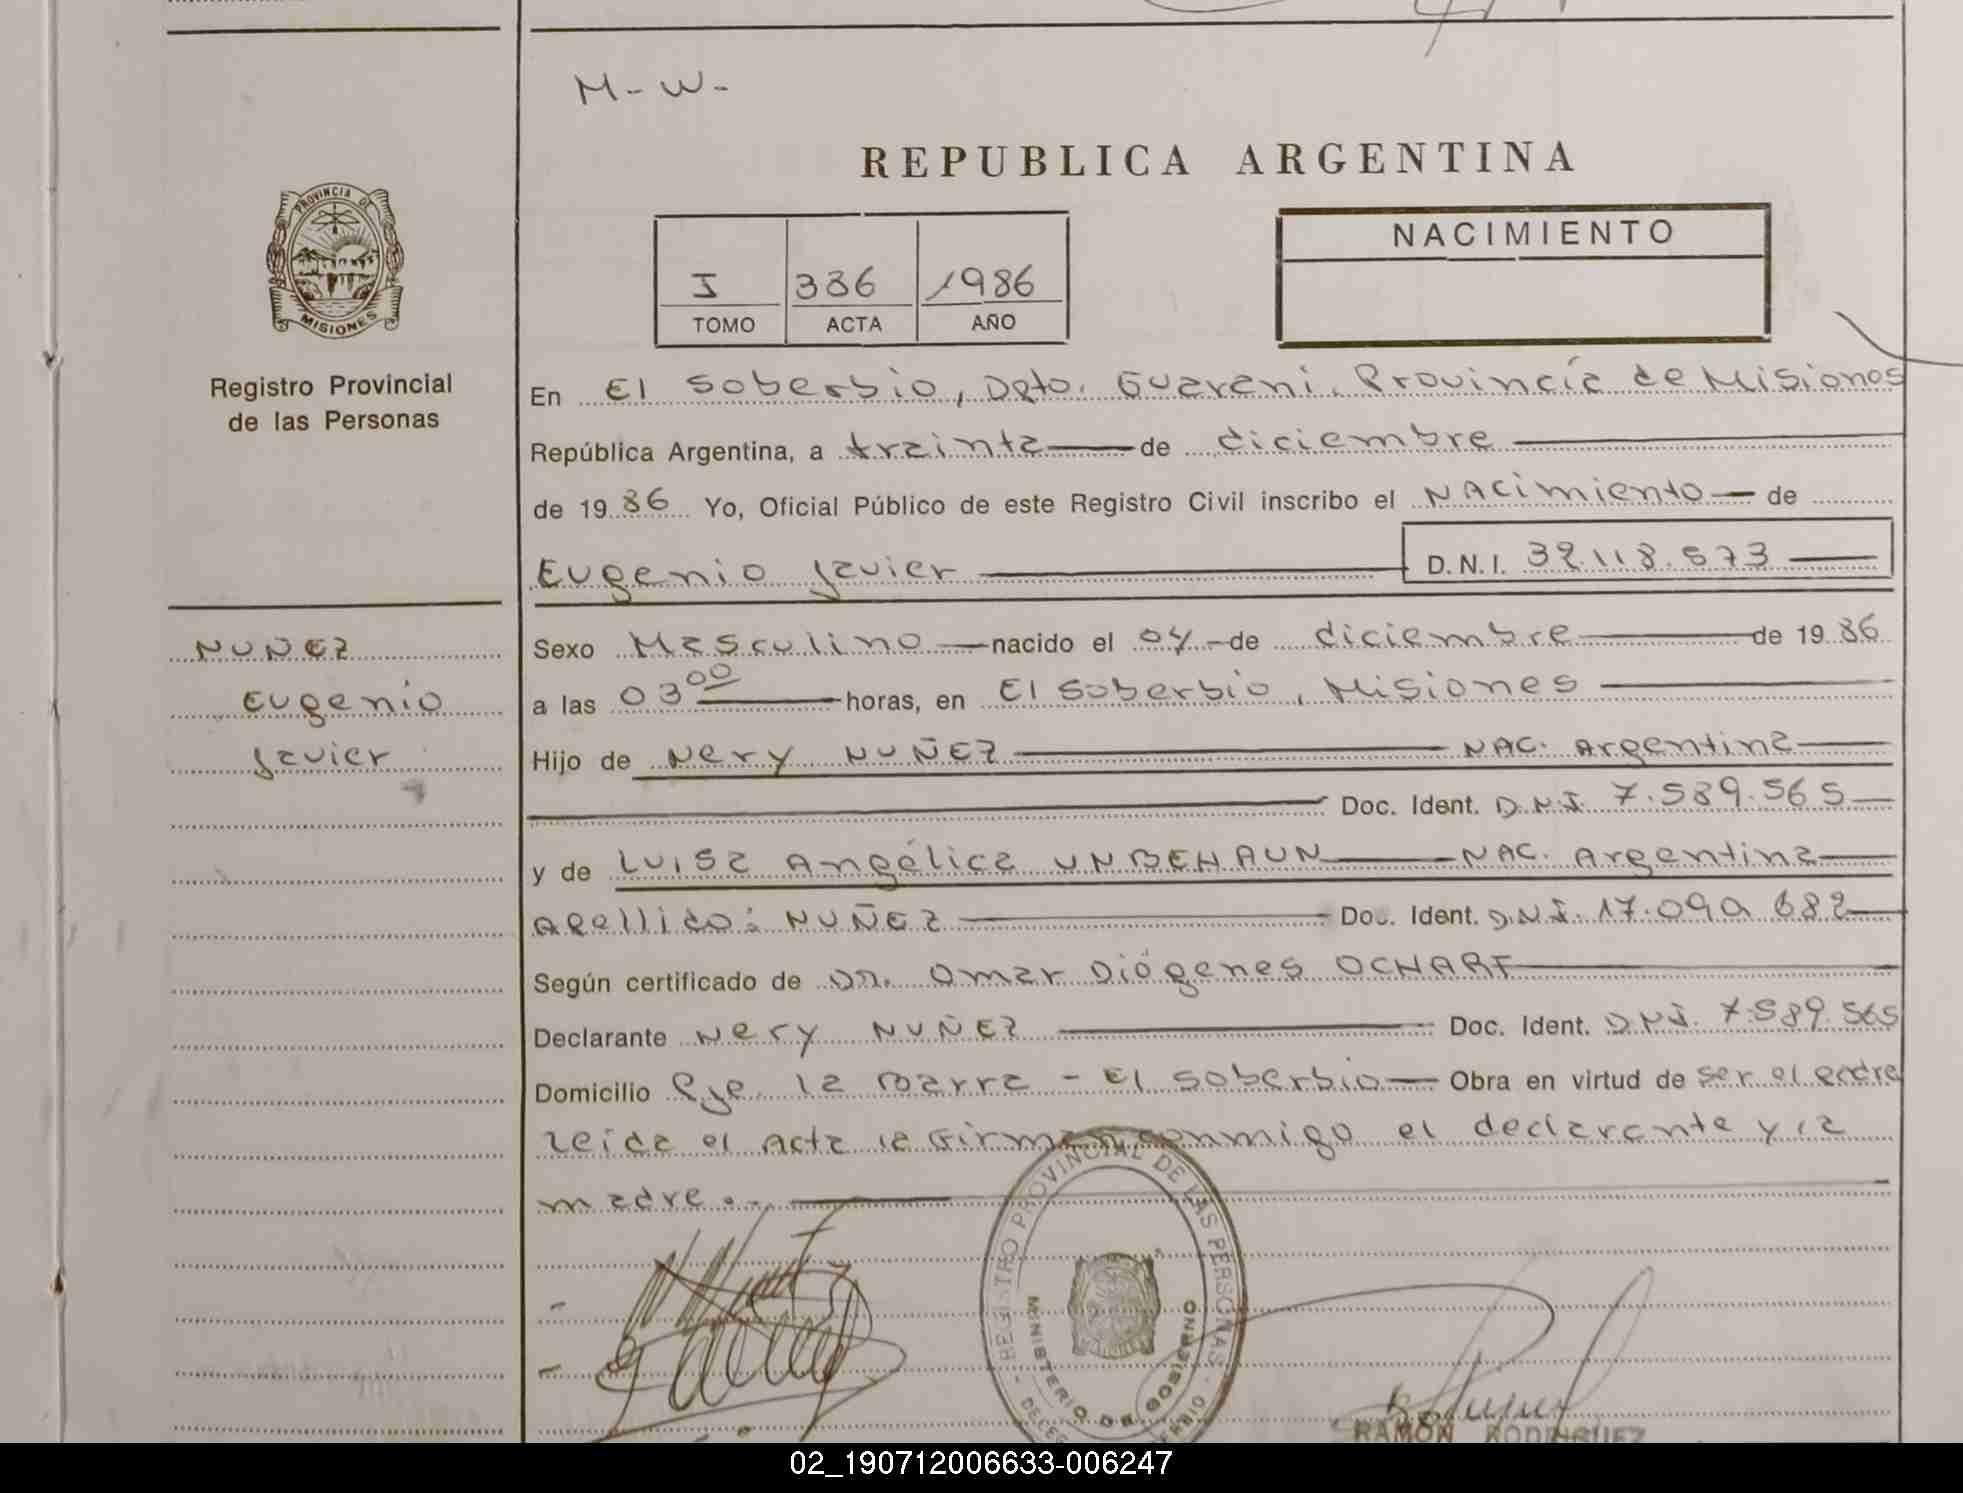 M-W-
REPUBLICA ARGENTINA
PROVINCIA DE
MISIONES
Registro Provincial
de las Personas
I 336 1986
TOMO ACTA AÑO
NACIMIENTO
En El Soberbio, Dpto. Guarani, Provincia de Misiones
República Argentina, a treinta de diciembre
de 1986 Yo, Oficial Público de este Registro Civil inscribo el NAcimiento de
Eugenio Javier D.N.I. 32.118.573
NUÑEZ
Eugenio
Javier
Sexo Masculino nacido el 04 de diciembre de 1986
a las 03 00 horas, en El Soberbio, Misiones
Hijo de Nery NUÑEZ NAC. Argentina
Doc. Ident. D.N.I. 7.589.565
y de Luisa Angélica UNBEHAUN NAC. Argentina
Apellido: NUÑEZ Doc. Ident. D.N.I. 17.090.682
Según certificado de Dr. Omar Diógenes OCHART
Declarante Nery NUÑEZ Doc. Ident. D.N.I. 7.589.565
Domicilio Pje. la Barra - El Soberbio Obra en virtud de ser el padre
leida el Acta la firman conmigo el declarante y la
madre.-
REGISTRO PROVINCIAL DE LAS PERSONAS
MINISTERIO DE GOBIERNO
RAMON RODRIGUEZ
02_190712006633-006247